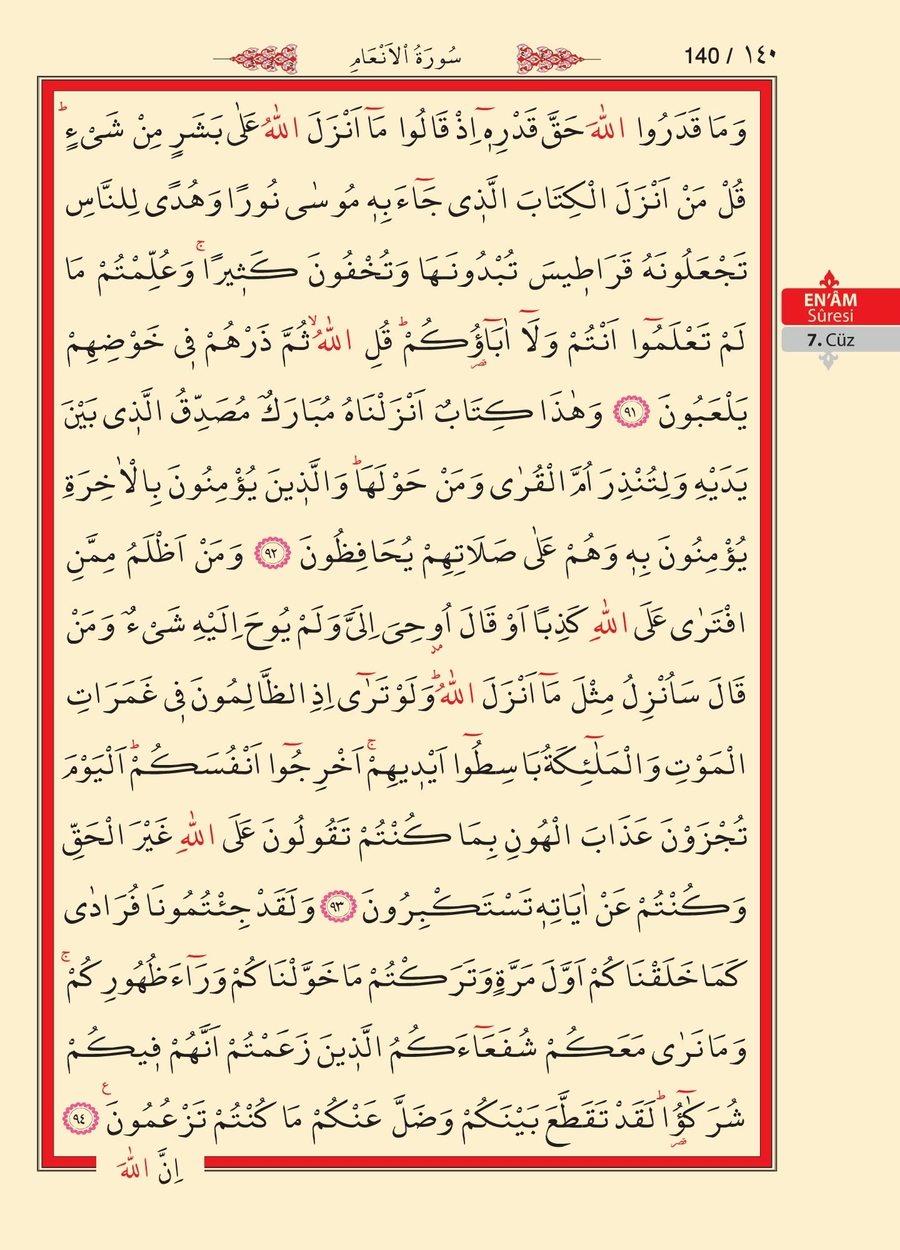 140 / ١٤٠
سُورَةُ الْاَنْعَامِ
وَمَا قَدَرُوا اللّٰهَ حَقَّ قَدْرِه۪ٓ اِذْ قَالُوا مَٓا اَنْزَلَ اللّٰهُ عَلٰى بَشَرٍ مِنْ شَیْءٍۜ
قُلْ مَنْ اَنْزَلَ الْكِتَابَ الَّذ۪ی جَٓاءَ بِه۪ مُوسٰى نُورًا وَهُدًى لِلنَّاسِ
تَجْعَلُونَهُ قَرَاط۪يسَ تُبْدُونَهَا وَتُخْفُونَ كَث۪يرًاۚ وَعُلِّمْتُمْ مَا
لَمْ تَعْلَمُٓوا اَنْتُمْ وَلَٓا اٰبَٓاؤُ۬كُمْۜ قُلِ اللّٰهُۙ ثُمَّ ذَرْهُمْ ف۪ی خَوْضِهِمْ
يَلْعَبُونَ ﴿٩١﴾ وَهٰذَا كِتَابٌ اَنْزَلْنَاهُ مُبَارَكٌ مُصَدِّقُ الَّذ۪ی بَيْنَ
يَدَيْهِ وَلِتُنْذِرَ اُمَّ الْقُرٰى وَمَنْ حَوْلَهَاۜ وَالَّذ۪ينَ يُؤْمِنُونَ بِالْاٰخِرَةِ
يُؤْمِنُونَ بِه۪ وَهُمْ عَلٰى صَلَاتِهِمْ يُحَافِظُونَ ﴿٩٢﴾ وَمَنْ اَظْلَمُ مِمَّنِ
افْتَرٰى عَلَى اللّٰهِ كَذِبًا اَوْ قَالَ اُو۫حِیَ اِلَیَّ وَلَمْ يُوحَ اِلَيْهِ شَیْءٌ وَمَنْ
قَالَ سَاُنْزِلُ مِثْلَ مَٓا اَنْزَلَ اللّٰهُۜ وَلَوْ تَرٰٓى اِذِ الظَّالِمُونَ ف۪ی غَمَرَاتِ
الْمَوْتِ وَالْمَلٰٓئِكَةُ بَاسِطُٓوا اَيْد۪يهِمْۚ اَخْرِجُٓوا اَنْفُسَكُمْۜ اَلْيَوْمَ
تُجْزَوْنَ عَذَابَ الْهُونِ بِمَا كُنْتُمْ تَقُولُونَ عَلَى اللّٰهِ غَيْرَ الْحَقِّ
وَكُنْتُمْ عَنْ اٰيَاتِه۪ تَسْتَكْبِرُونَ ﴿٩٣﴾ وَلَقَدْ جِئْتُمُونَا فُرَادٰى
كَمَا خَلَقْنَاكُمْ اَوَّلَ مَرَّةٍ وَتَرَكْتُمْ مَا خَوَّلْنَاكُمْ وَرَٓاءَ ظُهُورِكُمْۚ
وَمَا نَرٰى مَعَكُمْ شُفَعَٓاءَكُمُ الَّذ۪ينَ زَعَمْتُمْ اَنَّهُمْ ف۪يكُمْ
شُرَكٰٓؤُ۬اۜ لَقَدْ تَقَطَّعَ بَيْنَكُمْ وَضَلَّ عَنْكُمْ مَا كُنْتُمْ تَزْعُمُونَ۟ ﴿٩٤﴾
اِنَّ اللّٰهَ
EN'ÂM
Sûresi
7. Cüz